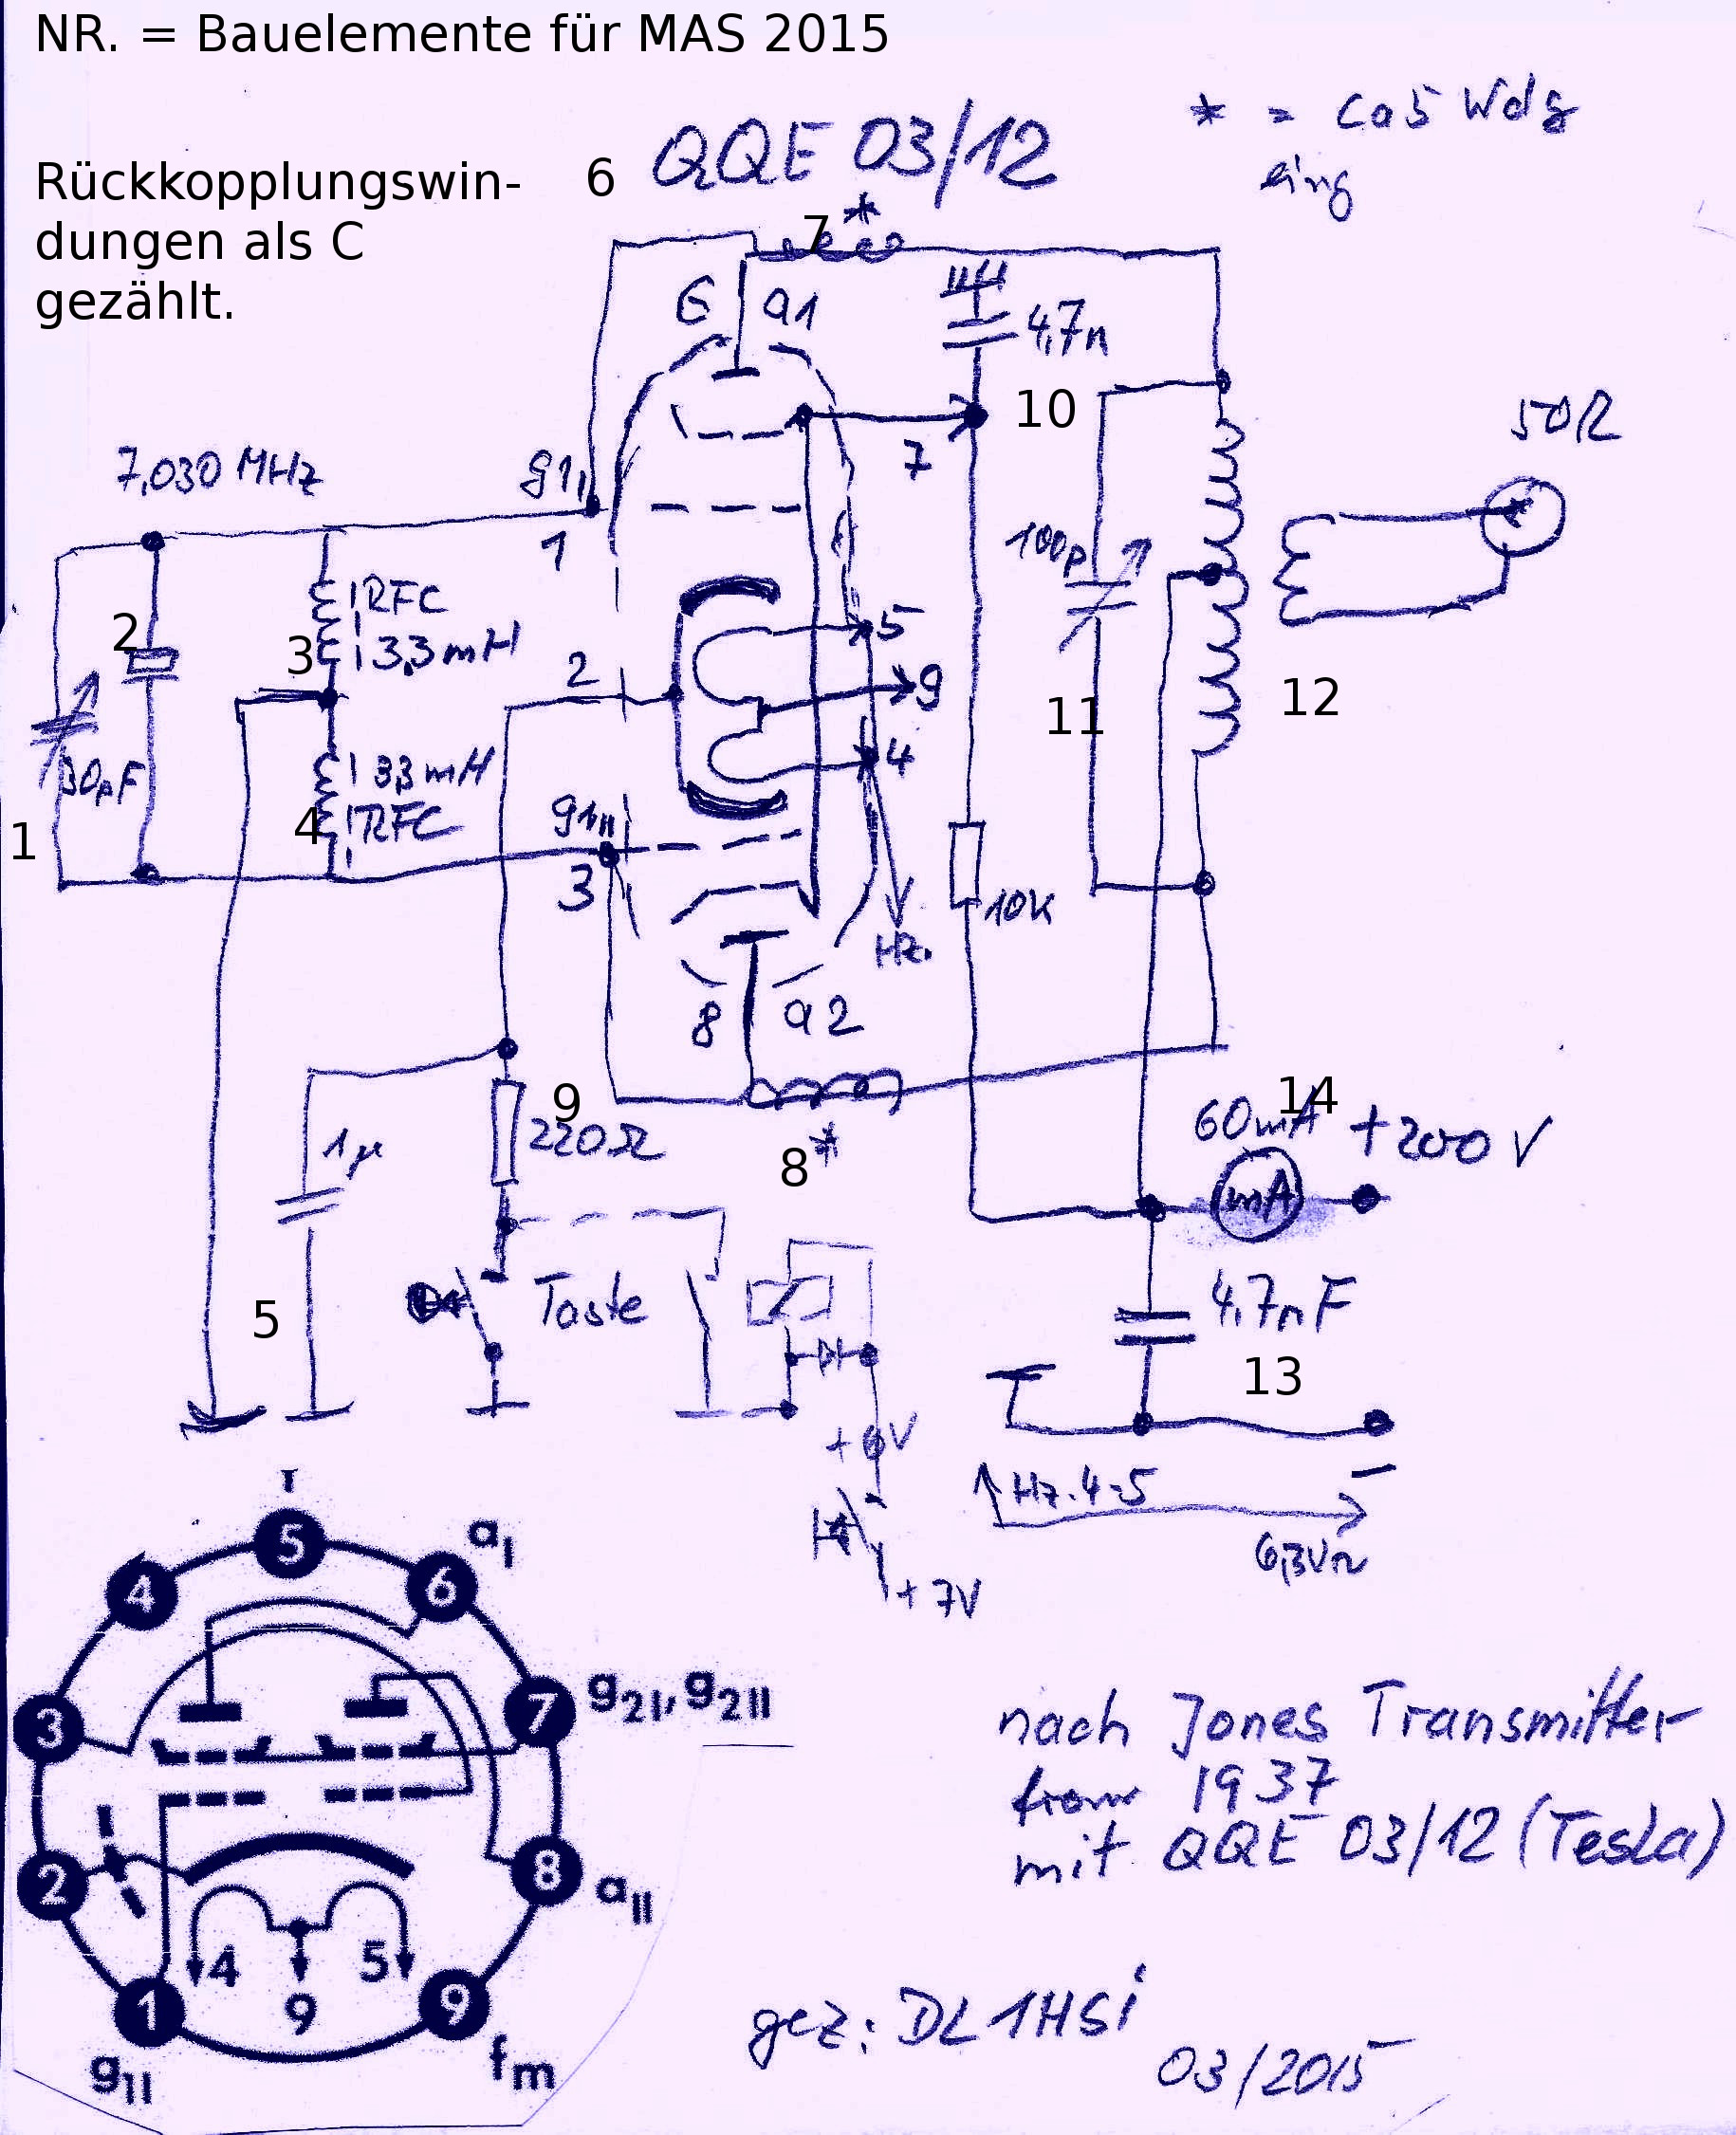 NR. = Bauelemente für MAS 2015
* = ca 5 Wdg
Rückkopplungswin-
dungen als C
gezählt.
6 QQE 03/12
7 *
6 a1
4,7n
10
7
50Ω
7,030 MHz
g1I
1
100p
2
RFC
3
3,3mH
2
5
9
11
12
30pF
3,3mH
4
RFC
1
4
g1II
3
10K
Hz.
8 a2
9
220Ω
8*
14
60mA +200 V
mA
1µ
5
Taste
4,7nF
13
+6V
Hz. 4-5
−
6,3V~
+7V
5
aI
4
6
3
7
g2I, g2II
2
8
aII
4 5
9
1
9
g1I
fm
nach Jones Transmitter
from 1937
mit QQE 03/12 (Tesla)
gez: DL1HSI
03/2015